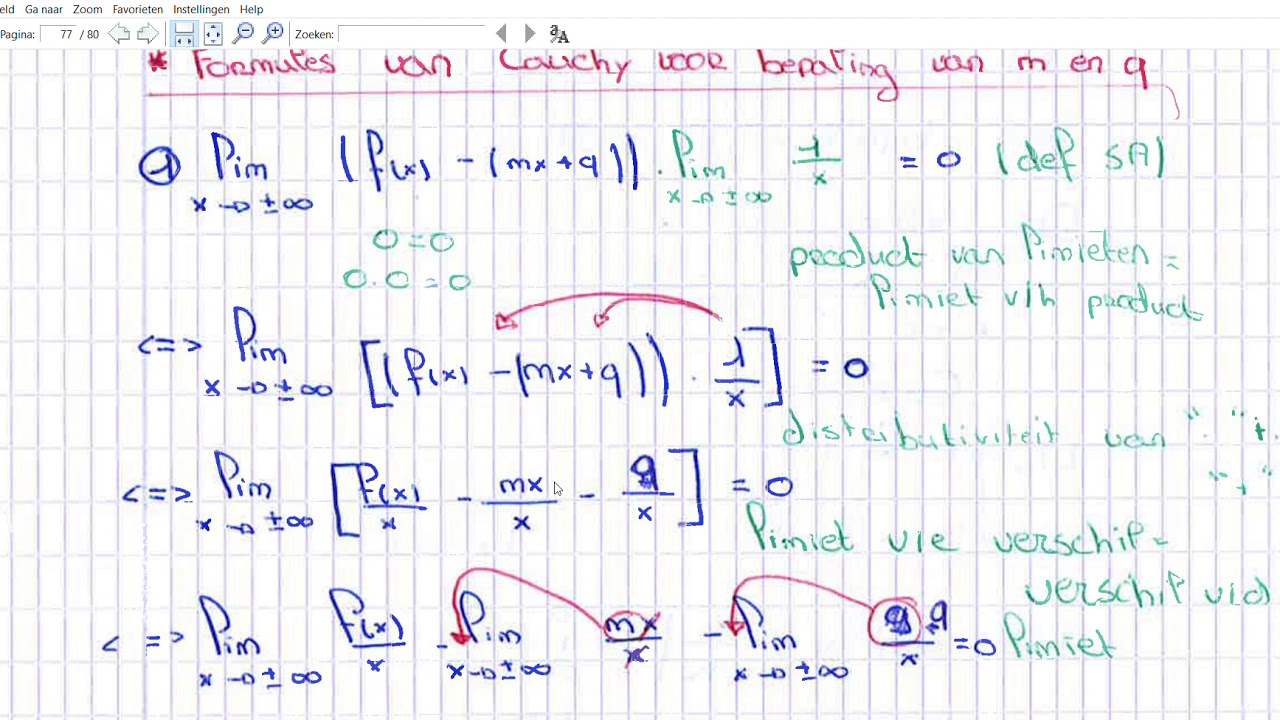 eld Ga naar Zoom Favorieten Instellingen Help
Pagina: 77 / 80 Zoeken:
* Formules van Cauchy voor bepaling van m en q
① lim (f(x) - (mx+q)) . lim 1/x = 0 (def SA)
x → ±∞ x → ±∞
0=0
0.0=0
product van limieten =
limiet v/h product
<=> lim [(f(x) - (mx+q)) . 1/x] = 0
x → ±∞
distributiviteit van "." t.
"+"
<=> lim [f(x)/x - mx/x - q/x] = 0
x → ±∞
limiet v/e verschil =
verschil v/d
limiet
<=> lim f(x)/x - lim mx/x - lim q/x = 0
x → ±∞ x → ±∞ x → ±∞